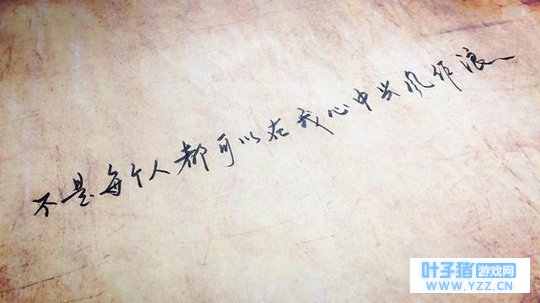 不是每个人都可以在我心中兴风作浪
叶子猪游戏网
www.YZZ.CN